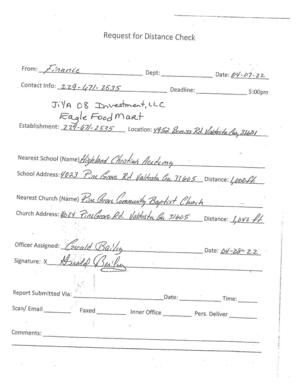 Request for Distance Check
From: Finance Dept: Date: 04-07-22
Contact Info: 229-471-2535 Deadline: 5:00pm
JiYA 08 Investment, LLC
Eagle Food Mart
Establishment: Location: Rd Valdosta Ga, 31601
Nearest School (Name) Highland Christian Academy
School Address: 4023 Pine Grove Rd Valdosta Ga 31605 Distance:
Nearest Church (Name) Pine Grove Community Baptist Church
Church Address: Pine Grove Rd. Valdosta Ga 31605 Distance:
Officer Assigned: Gerald Bailey Date: 04-28-22
Signature: X Gerald Bailey
Report Submitted Via: Date: Time:
Scan/ Email Faxed Inner Office Pers. Deliver
Comments: